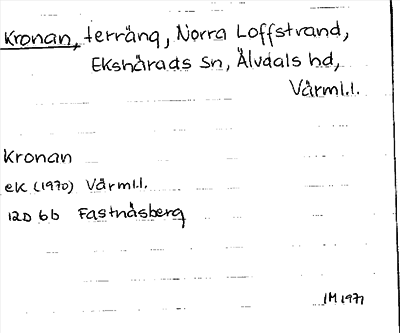 Kronan, terräng, Norra Loffstrand,
Ekshärads sn, Älvdals hd,
Värml.l.
Kronan
ek (1970) Värml.l.
12D 6b Fastnäsberg
IM 1977